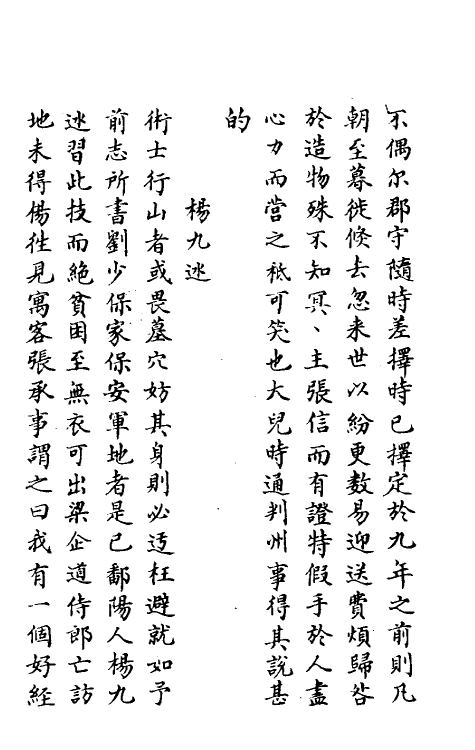 不偶尔郡守隨時差擇時已擇定於九年之前則凡
朝至暮徙倐去忽来世以紛更数易迎送費煩歸咎
於造物殊不知冥、主張信而有證特假手於人盡
心力而營之秪可笑也大兒時通判州事得其説甚
的
楊九迷
術士行山者或畏墓穴妨其身則必迃枉避就如予
前志所書劉少保家保安軍地者是已鄱陽人楊九
迷習此技而絶貧困至無衣可出梁企道侍郎亡訪
地未得偒徃見寓客張承事謂之曰我有一個好經